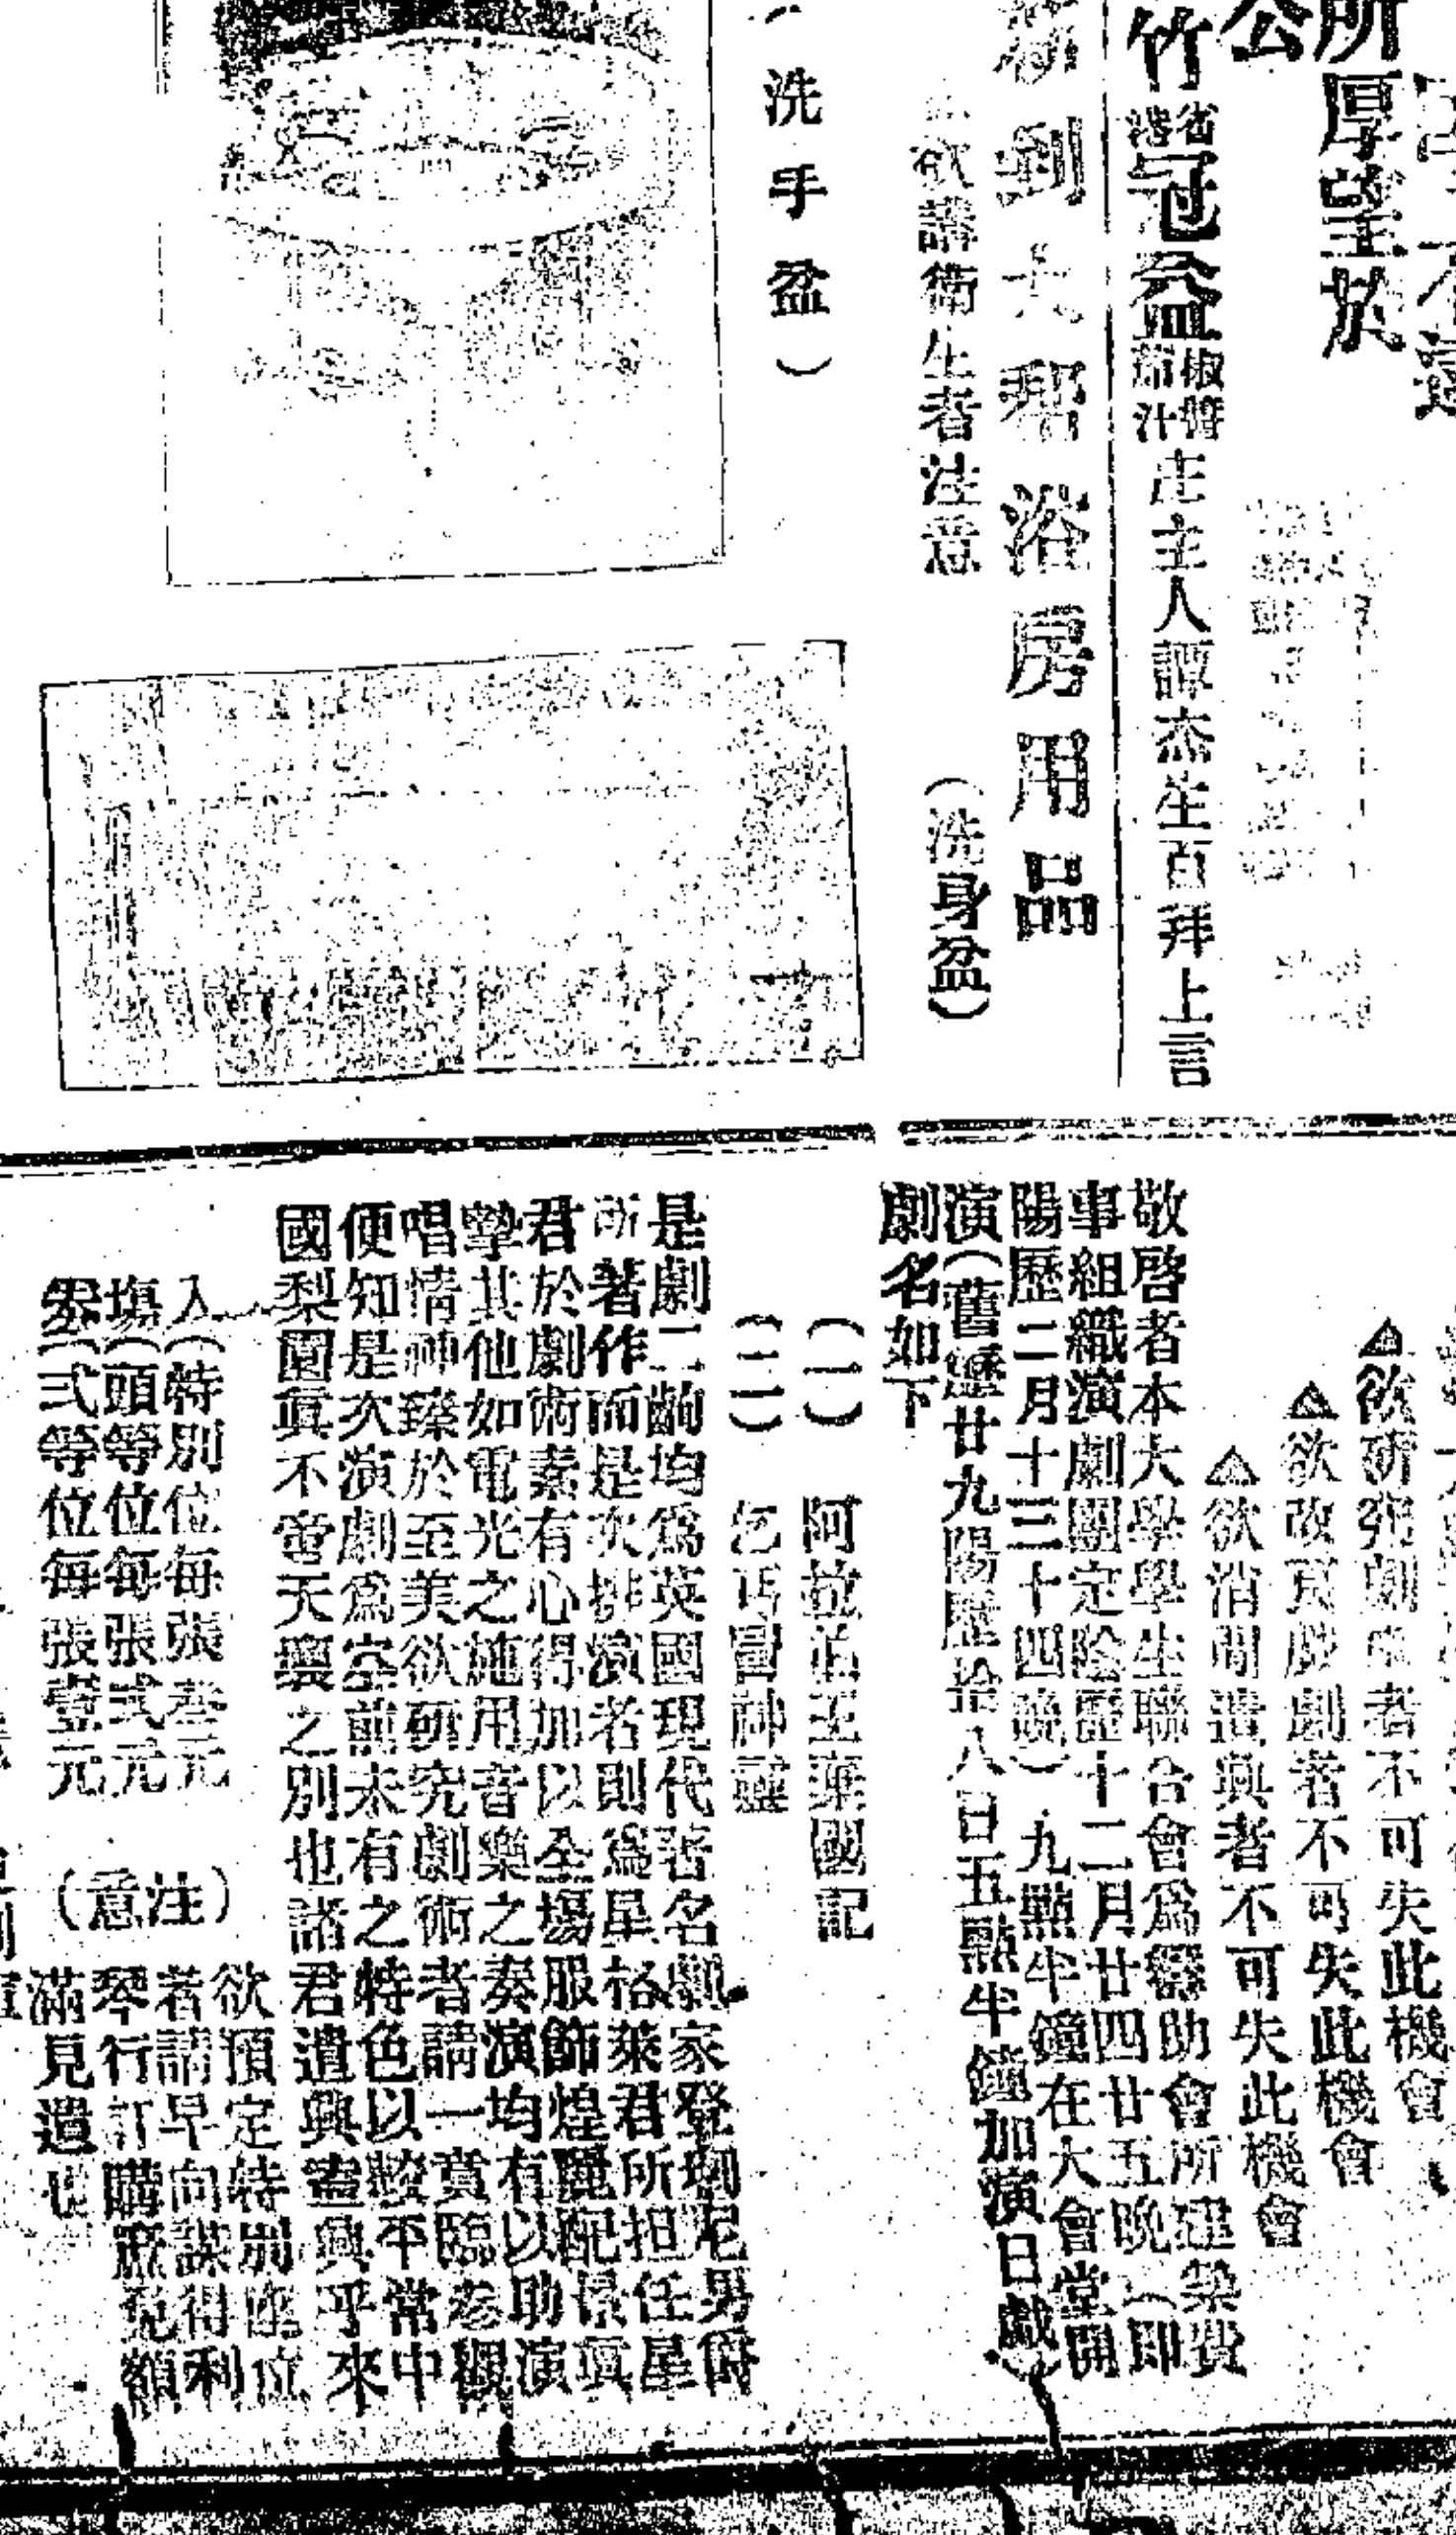 所厚望於
公
竹
省港
冠益
椒醬
茄汁
庄主人譚杰生百拜上言
新到大幫浴房用品
欲講衛生者注意
(洗身盆)
(洗手盆)
▲欲研究劇學者不可失此機會
▲欲改良戲劇者不可失此機會
▲欲消閒遣興者不可失此機會
敬啓者本大學學生聯合會爲籌助會所建築費
事組織演劇團定陰歷十二月廿四廿五晚(即
陽歷二月十三十四晚)九點半鐘在大會堂開
演(舊歷廿九陽歷拾八日五點半鐘加演日戲)
劇名如下
(一) 阿拉伯王棄國記
(二) 乞丐冒神靈
是劇二齣均爲英國現代著名劇家登瑯尼男爵
所著作而是次排演者則爲星格萊君所担任星
君於劇術素有心得加以全場服飾煌麗配景眞
摯其他如電光之施用音樂之奏演均有以助演
唱情神臻於至美欲研究劇術者請一賞臨參觀
便知是次演劇爲空前未有之特色以較平常中
國梨園眞不啻天壤之別也諸君遣興盍興乎來
入(特別位每張叁元
塲(頭等位每張弍元
券(弍等位每張壹元
(注意)
欲預定特別座位
者請早向謀得利
琴行訂購庶免額
滿見遺也